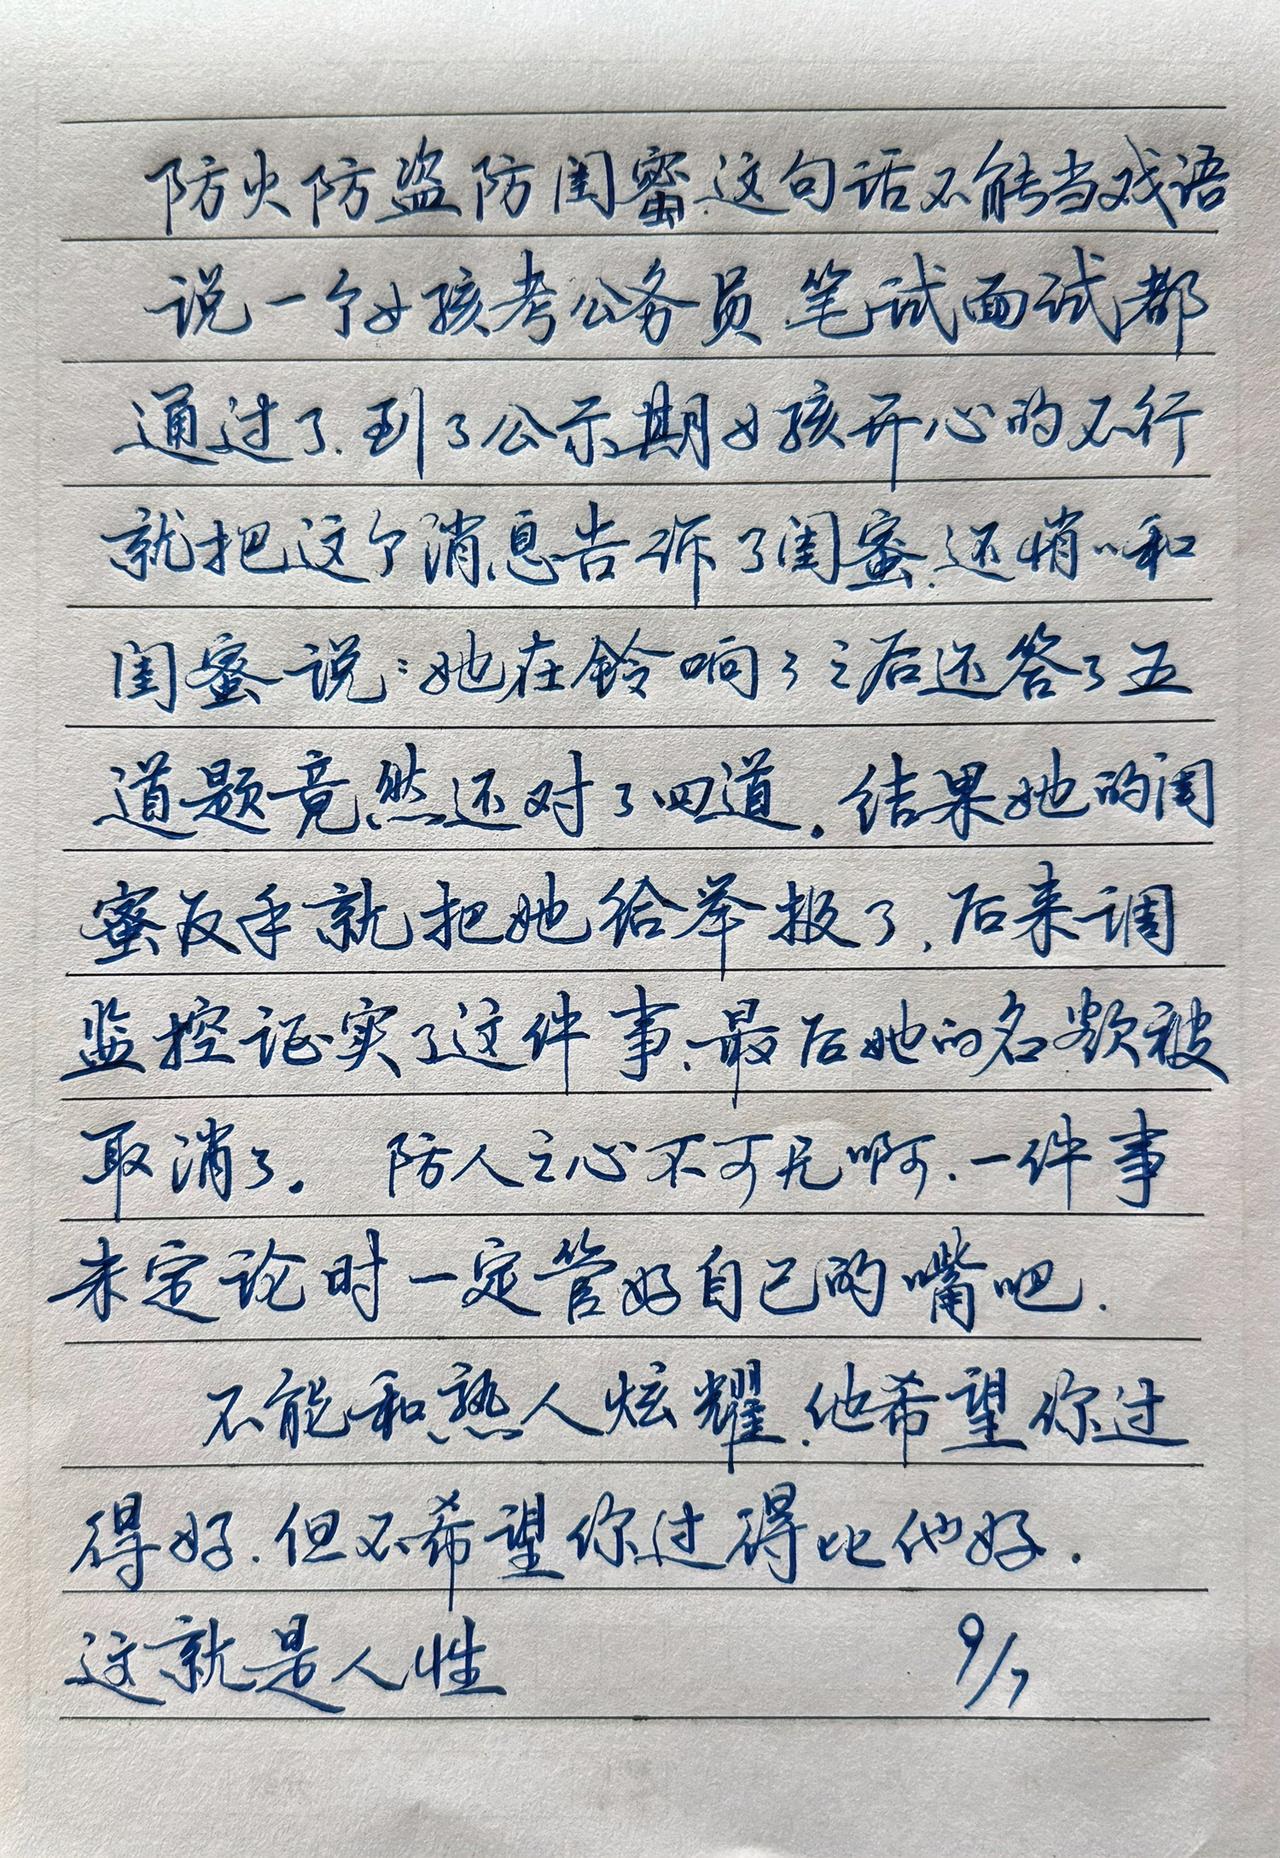 防火防盗防闺蜜.这句话不能当戏语
说一个女孩考公务员.笔试面试都
通过了.到了公示期女孩开心的不行
就把这个消息告诉了闺蜜.还悄〃和
闺蜜说:她在铃响了之后还答了五
道题竟然还对了四道。结果她的闺
蜜反手就把她给举报了,后来调
监控证实了这件事、最后她的名额被
取消了。 防人之心不可无啊.一件事
未定论时一定管好自己的嘴吧.
不能和熟人炫耀.他希望你过
得好.但不希望你过得比他好.
这就是人性 9/7